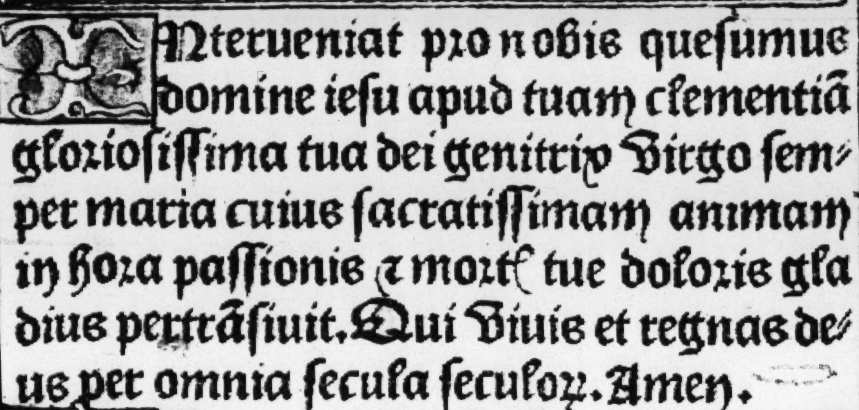 INterueniat pro nobis quesumus
domine iesu apud tuam clementiã
gloriosissima tua dei genitrix Virgo sem⸗
per maria cuius sacratissimam animam
in hora passionis ⁊ mortꝭ tue doloris gla
dius pertrãsiuit. Qui Viuis et regnas de⸗
us per omnia secula seculoꝝ. Amen.